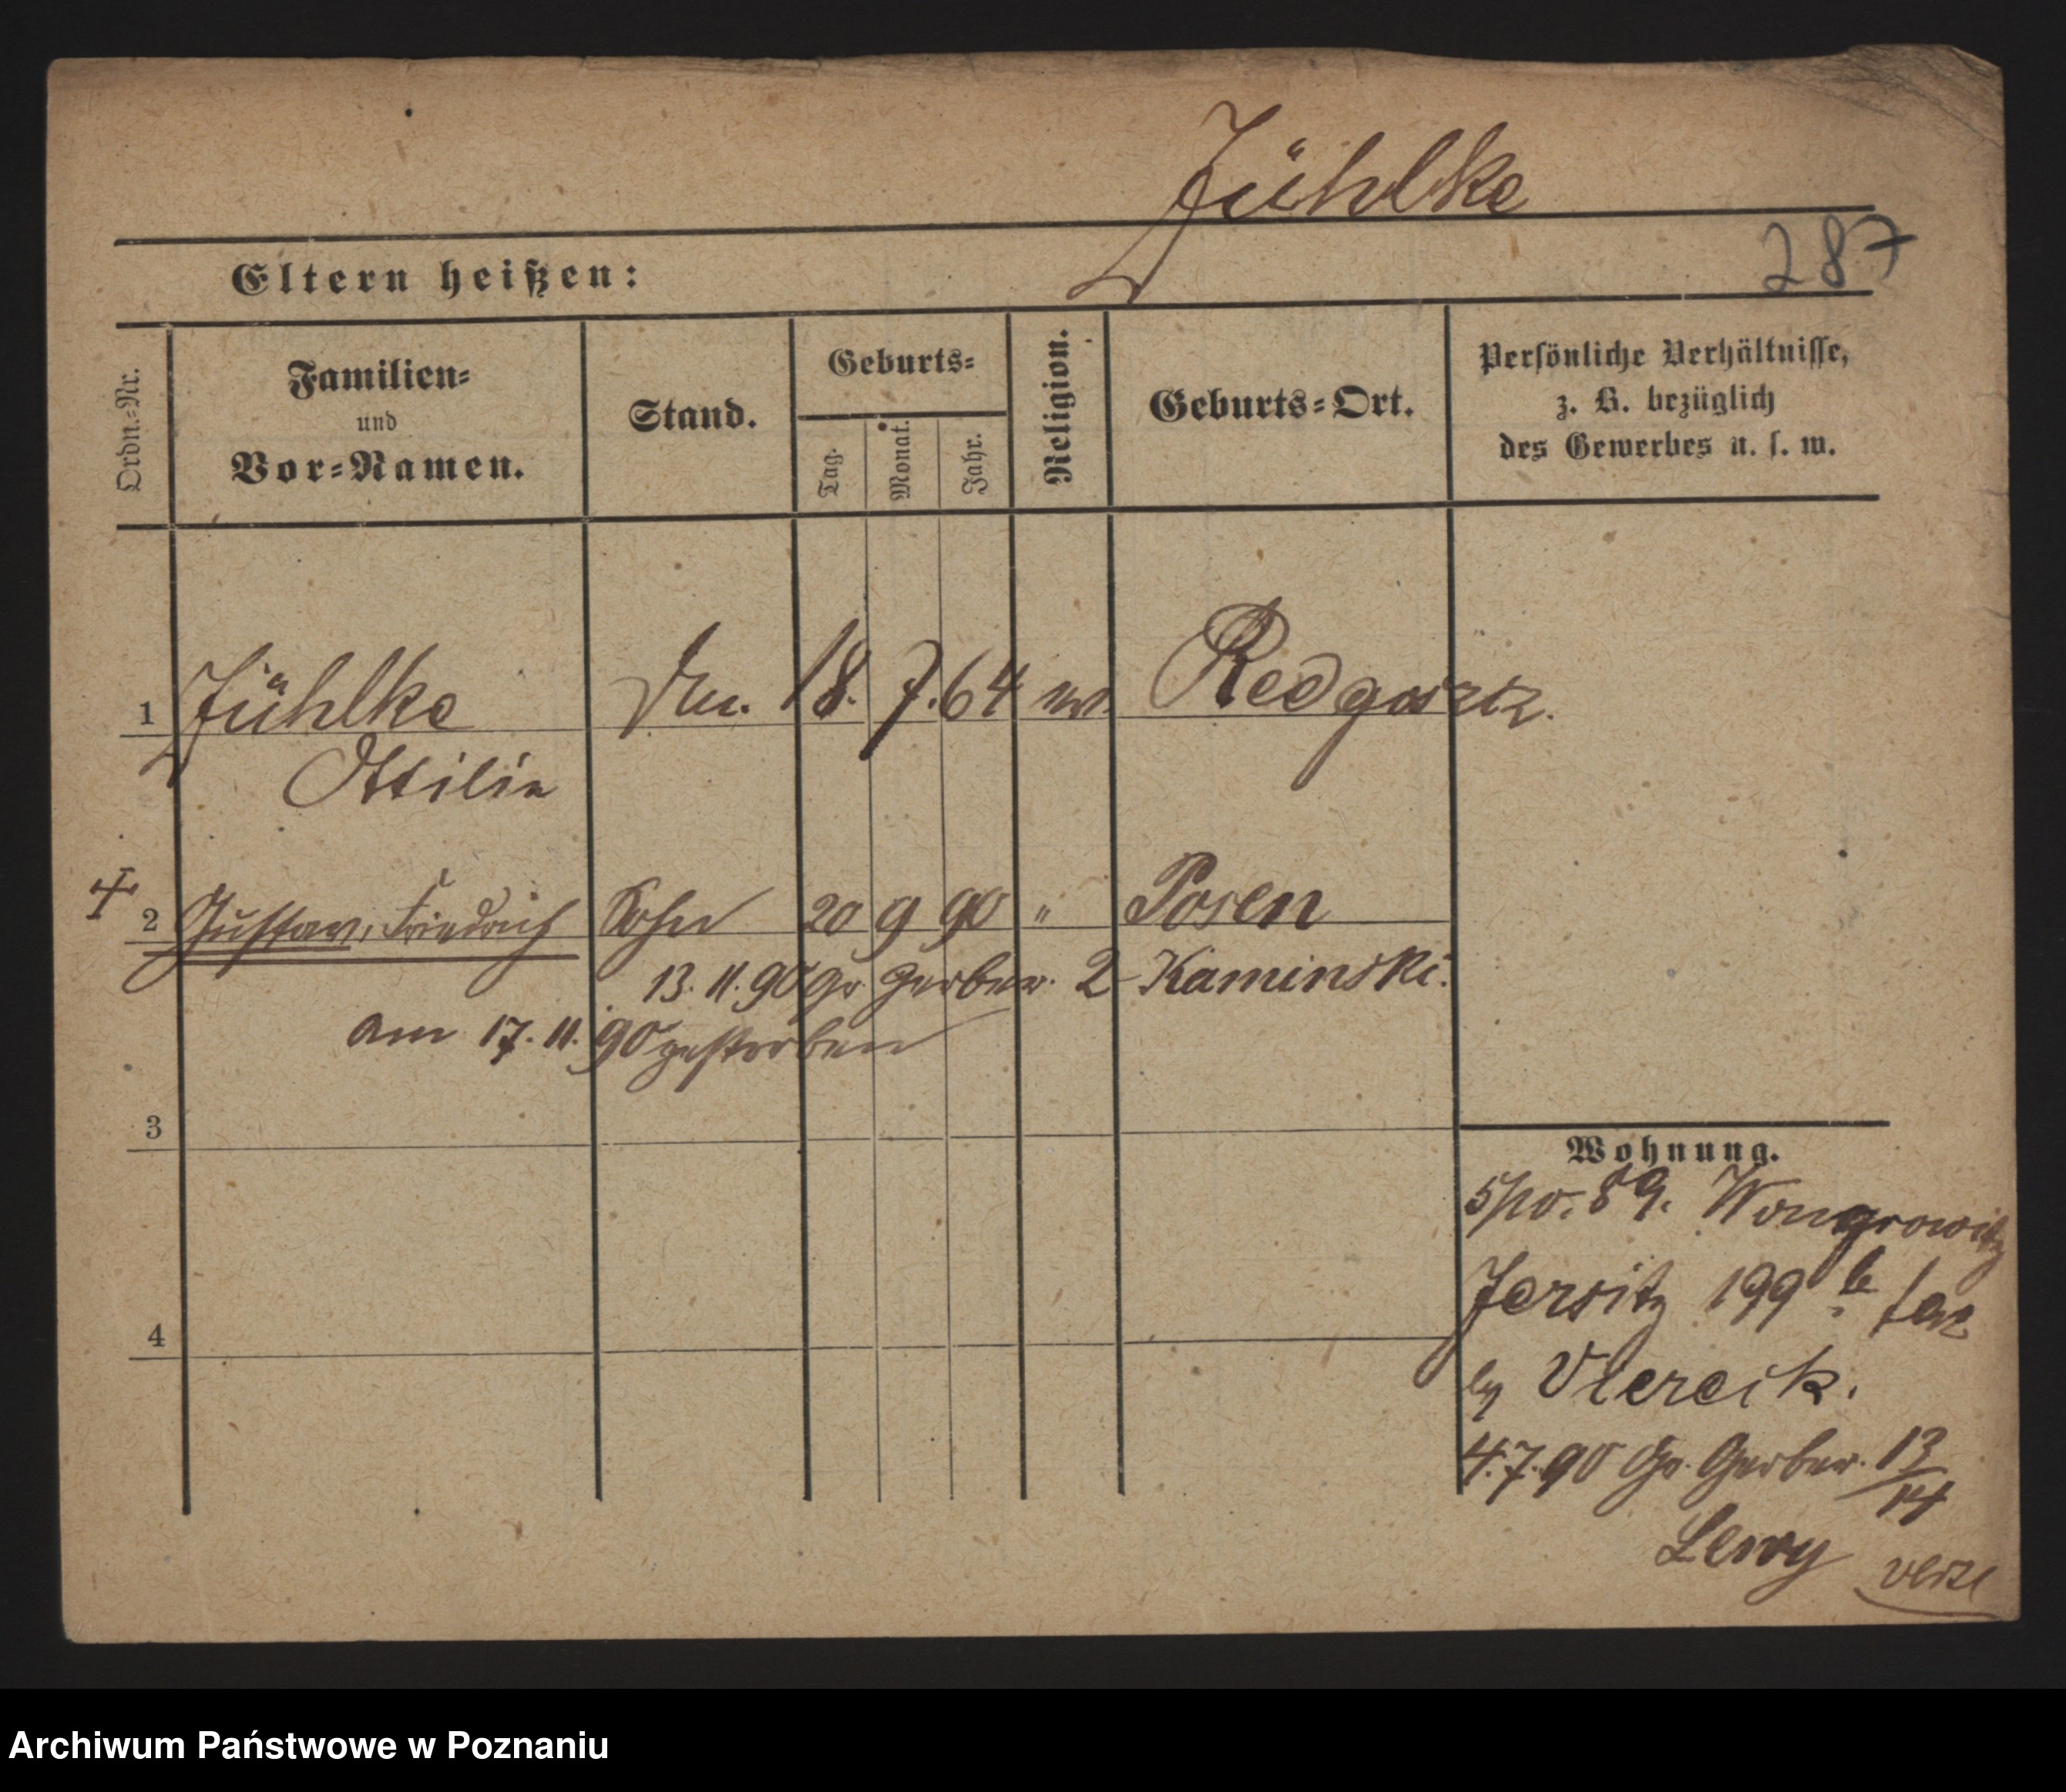 Jühlke
287
Eltern heißen:
Ordn.=Nr.
Familien=
und
Vor=Namen.
Stand.
Geburts=
Tag.
Monat.
Jahr.
Religion.
Geburts=Ort.
Persönliche Verhältnisse,
z. B. bezüglich
des Gewerbes u. s. w.
1 Jühlke 18. 7. 64 ev. Redgoszcz.
Ottilie
2 Gustav, Friedrich Sohn 20 9 90 " Posen
13. 11. 90 Gr. Gerber. 2 Kaminski.
am 17. 11. 90 gestorben
3
4
Wohnung.
89. Wongrowitz
Jersitz 199
4.7.90 Gr. Gerber. 13/14
Lewy
Archiwum Państwowe w Poznaniu